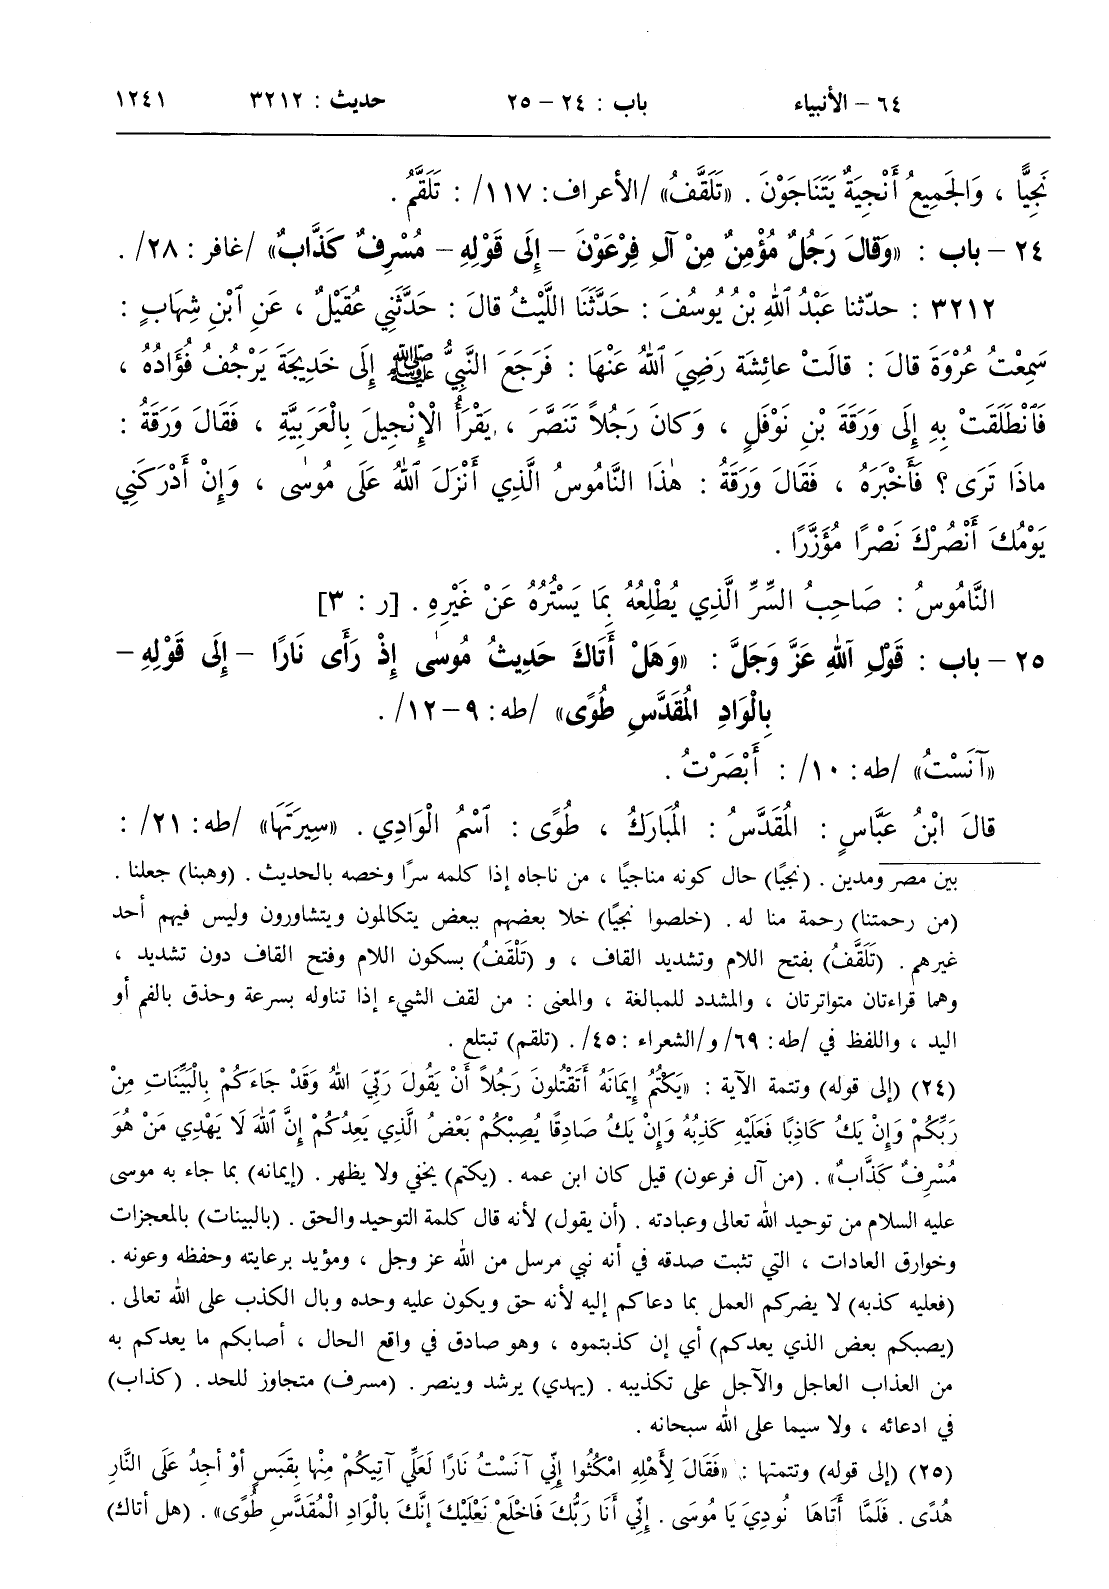 ٦٤ – الأنبياء باب : ٢٤ – ٢٥ حديث : ٣٢١٢ ١٢٤١
نَجِيًّا ، وَالجَمِيعُ أَنْجِيَةٌ يَتَنَاجَوْنَ . «تَلَقَّفُ» /الأعراف: ١١٧/ : تَلَقَّمُ .
٢٤ – باب : «وَقَالَ رَجُلٌ مُؤْمِنٌ مِنْ آلِ فِرْعَوْنَ – إِلَى قَوْلِهِ – مُسْرِفٌ كَذَّابٌ» /غافر : ٢٨/ .
٣٢١٢ : حدّثنا عَبْدُ ٱللهِ بْنُ يُوسُفَ : حَدَّثَنَا اللَّيْثُ قالَ : حَدَّثَنِي عُقَيْلٌ ، عَنِ ٱبْنِ شِهَابٍ :
سَمِعْتُ عُرْوَةَ قالَ : قالَتْ عائِشَة رَضِيَ ٱللهُ عَنْهَا : فَرَجَعَ النَّبِيُّ ﷺ إِلَى خَدِيجَةَ يَرْجُفُ فُؤَادُهُ ،
فَٱنْطَلَقَتْ بِهِ إِلَى وَرَقَةَ بْنِ نَوْفَلٍ ، وَكانَ رَجُلاً تَنَصَّرَ ، يَقْرَأُ الْإِنْجِيلَ بِالْعَرَبِيَّةِ ، فَقَالَ وَرَقَةُ :
ماذَا تَرَى ؟ فَأَخْبَرَهُ ، فَقَالَ وَرَقَةُ : هٰذَا النَّامُوسُ الَّذِي أَنْزَلَ ٱللهُ عَلَى مُوسٰى ، وَإِنْ أَدْرَكَنِي
يَوْمُكَ أَنْصُرْكَ نَصْرًا مُؤَزَّرًا .
النَّامُوسُ : صَاحِبُ السِّرِّ الَّذِي يُطْلِعُهُ بِمَا يَسْتُرُهُ عَنْ غَيْرِهِ . [ر : ٣]
٢٥ – باب : قَوْلِ ٱللهِ عَزَّ وَجَلَّ : «وَهَلْ أَتَاكَ حَدِيثُ مُوسٰى إِذْ رَأَى نَارًا – إِلَى قَوْلِهِ –
بِالْوَادِ المُقَدَّسِ طُوًى» /طه: ٩–١٢/ .
«آنَسْتُ» /طه: ١٠/ : أَبْصَرْتُ .
قالَ ابْنُ عَبَّاسٍ : المُقَدَّسُ : المُبَارَكُ ، طُوًى : ٱسْمُ الْوَادِي . «سِيرَتَهَا» /طه: ٢١/ :
بين مصر ومدين . (نجيًا) حال كونه مناجيًا ، من ناجاه إذا كلمه سرًا وخصه بالحديث . (وهبنا) جعلنا .
(من رحمتنا) رحمة منا له . (خلصوا نجيًا) خلا بعضهم ببعض يتكالمون ويتشاورون وليس فيهم أحد
غيرهم . (تَلَقَّفُ) بفتح اللام وتشديد القاف ، و (تَلْقَفُ) بسكون اللام وفتح القاف دون تشديد ،
وهما قراءتان متواترتان ، والمشدد للمبالغة ، والمعنى : من لقف الشيء إذا تناوله بسرعة وحذق بالفم أو
اليد ، واللفظ في /طه: ٦٩/ و/الشعراء :٤٥/ . (تلقم) تبتلع .
(٢٤) (إلى قوله) وتتمة الآية : «يَكْتُمُ إِيمَانَهُ أَتَقْتُلُونَ رَجُلاً أَنْ يَقُولَ رَبِّيَ اللهُ وَقَدْ جَاءَكُمْ بِالْبَيِّنَاتِ مِنْ
رَبِّكُمْ وَإِنْ يَكُ كَاذِبًا فَعَلَيْهِ كَذِبُهُ وَإِنْ يَكُ صَادِقًا يُصِبْكُمْ بَعْضُ الَّذِي يَعِدُكُمْ إِنَّ ٱللهَ لَا يَهْدِي مَنْ هُوَ
مُسْرِفٌ كَذَّابٌ» . (من آل فرعون) قيل كان ابن عمه . (يكتم) يخفي ولا يظهر . (إيمانه) بما جاء به موسى
عليه السلام من توحيد الله تعالى وعبادته . (أن يقول) لأنه قال كلمة التوحيد والحق . (بالبينات) بالمعجزات
وخوارق العادات ، التي تثبت صدقه في أنه نبي مرسل من الله عز وجل ، ومؤيد برعايته وحفظه وعونه .
(فعليه كذبه) لا يضركم العمل بما دعاكم إليه لأنه حق ويكون عليه وحده وبال الكذب على الله تعالى .
(يصبكم بعض الذي يعدكم) أي إن كذبتموه ، وهو صادق في واقع الحال ، أصابكم ما يعدكم به
من العذاب العاجل والآجل على تكذيبه . (يهدي) يرشد وينصر . (مسرف) متجاوز للحد . (كذاب)
في ادعائه ، ولا سيما على الله سبحانه .
(٢٥) (إلى قوله) وتتمتها : «فَقَالَ لِأَهْلِهِ امْكُثُوا إِنِّي آنَسْتُ نَارًا لَعَلِّي آتِيكُمْ مِنْهَا بِقَبَسٍ أَوْ أَجِدُ عَلَى النَّارِ
هُدًى . فَلَمَّا أَتَاهَا نُودِيَ يَا مُوسَى . إِنِّي أَنَا رَبُّكَ فَاخْلَعْ نَعْلَيْكَ إِنَّكَ بِالْوَادِ الْمُقَدَّسِ طُوًى» . (هل أتاك)